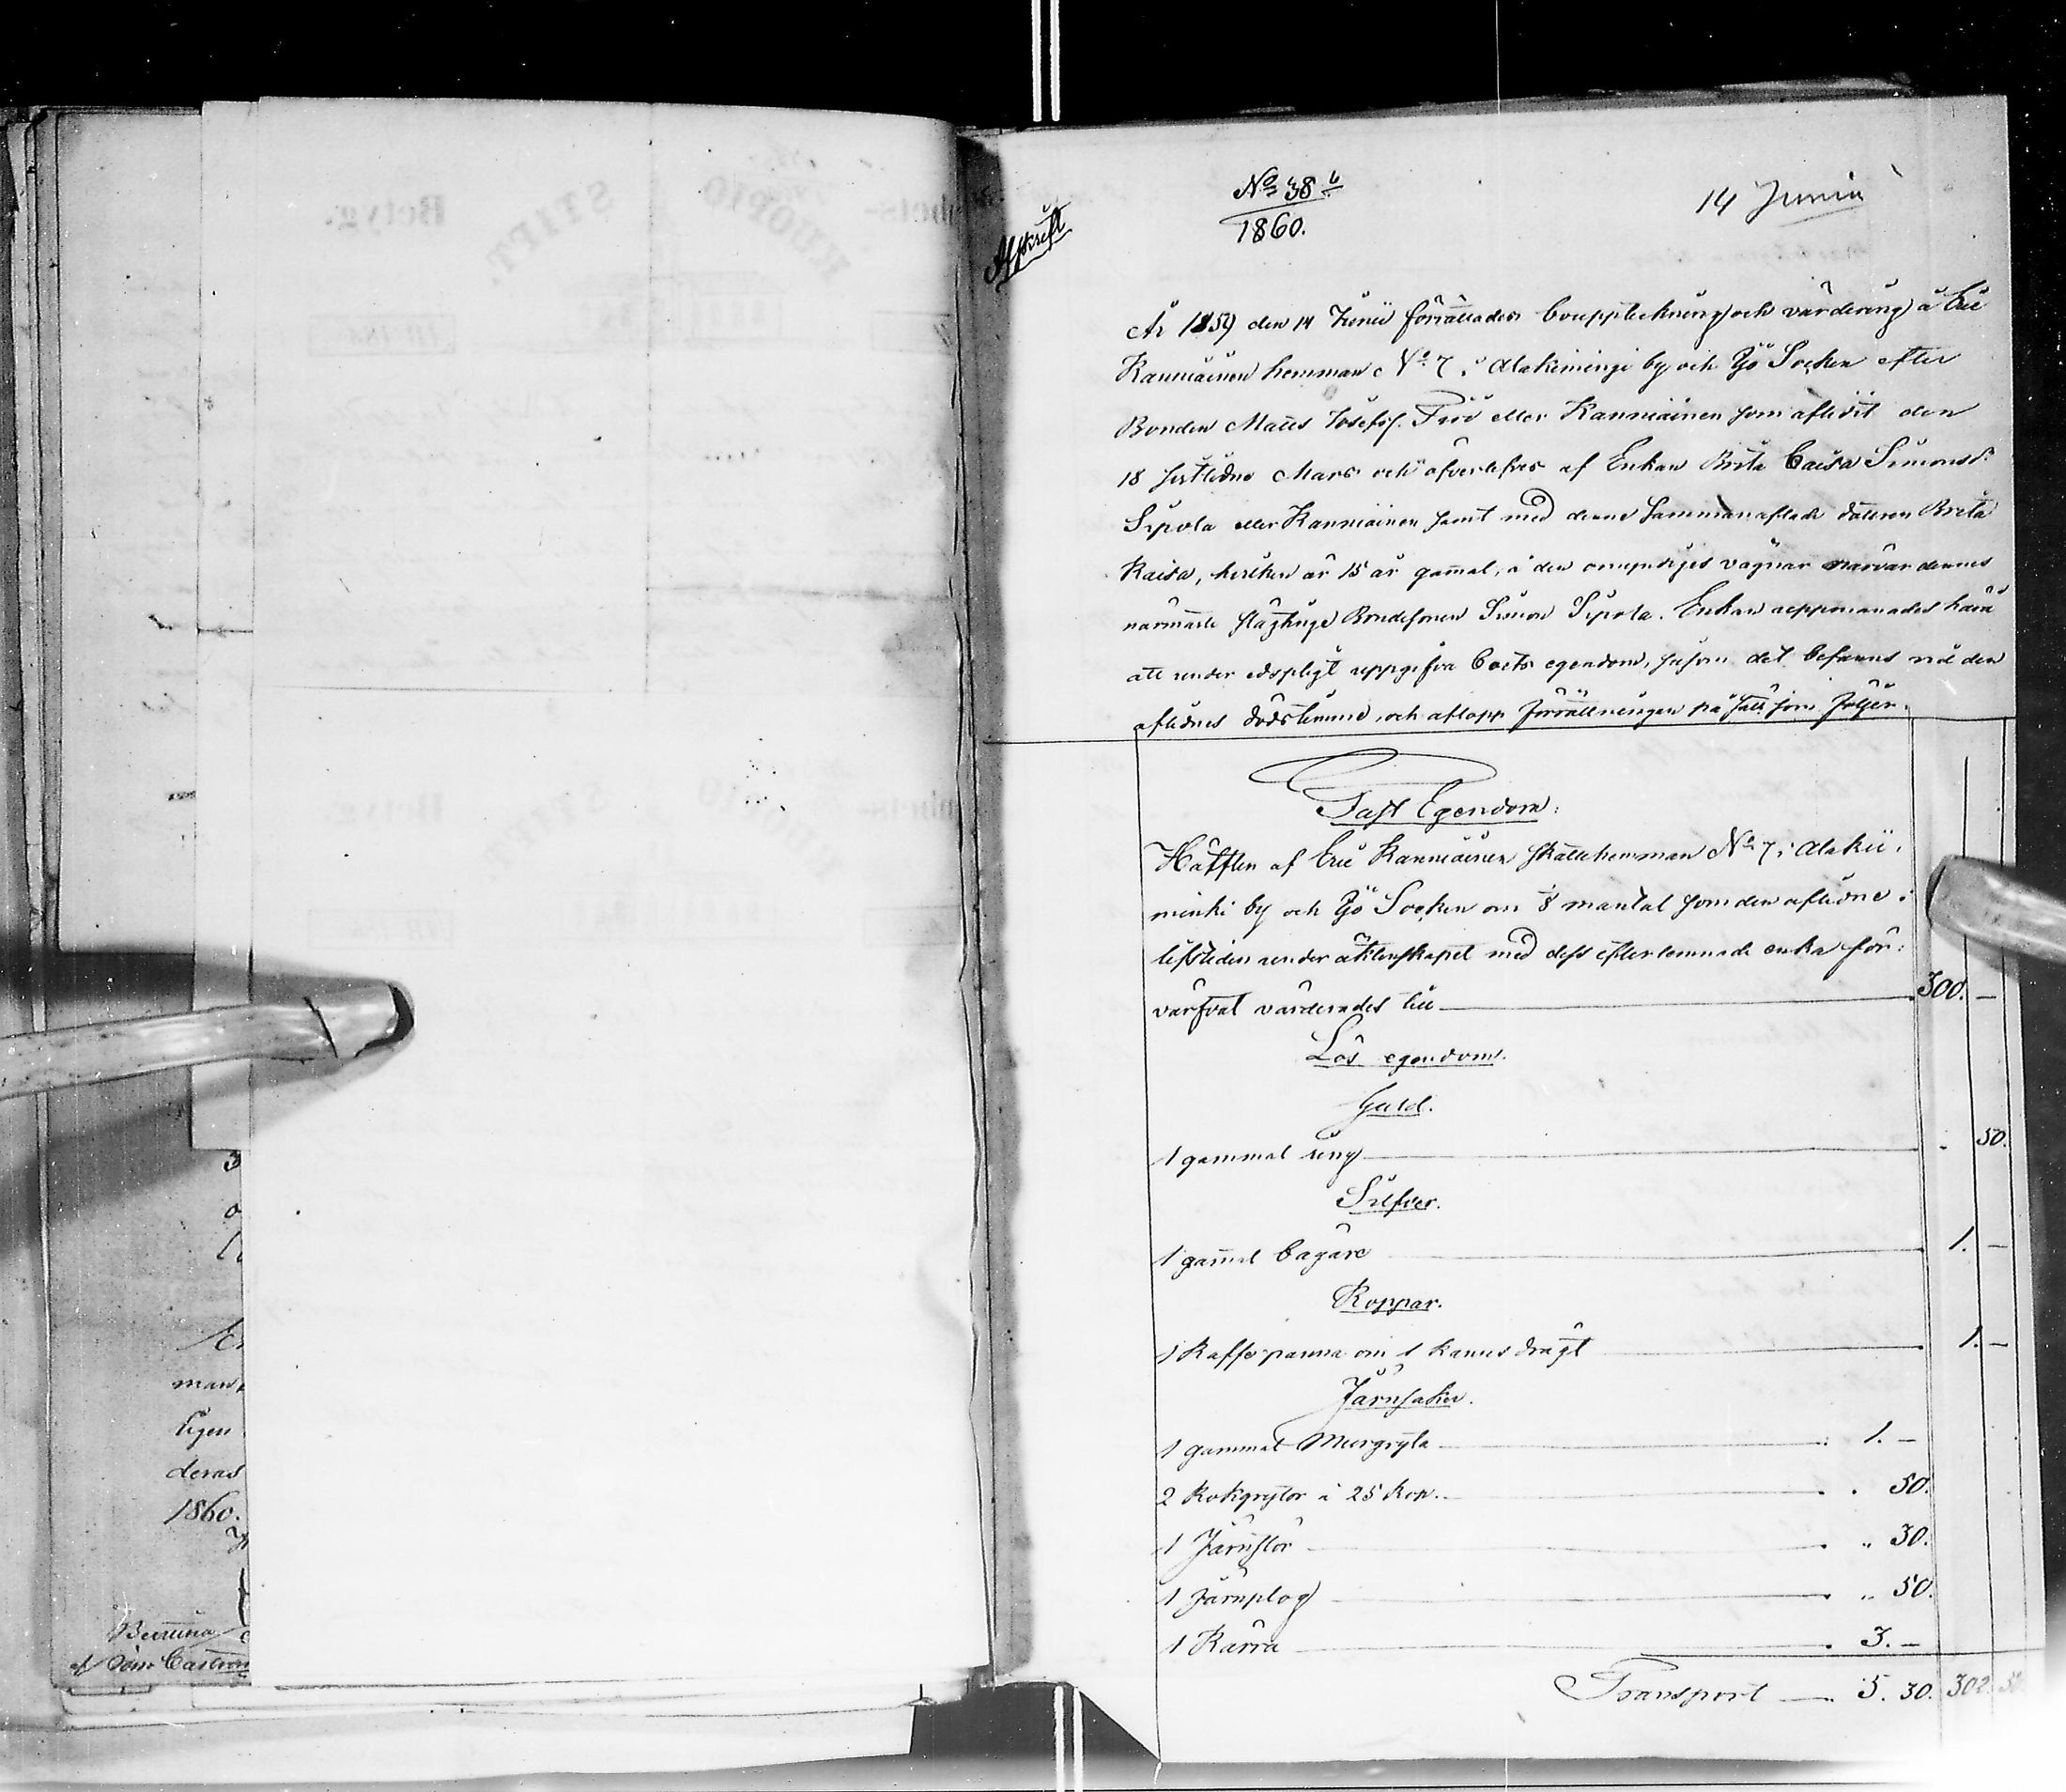 No 38 b
1860.
14 Junii
Afskrift
År 1859 den 14 Junii förrättades bouppteckning och värdering å Eric
Kanniainen hemman No 7 i Alakiiminge by och Ijö Socken efter
Bonden Matts Josefss. eller Kanniainen som aflidit den
18 sistlidne Mars och öfverlefves af Enkan Brita Caisa Simonsdr
Sipola eller Kanniainen samt med denne sammanaflade dotteren Breta
Kaisa, hvilken är 15 år gamal, å den omyndiges vägnar närvar dennes
närmaste slägtinge Bondesonen Simon Sipola. Enkan uppmanades
att under edspligt uppgifva boets egendom, såsom det befanns vid den
aflidnes dödstimme, och aflopp förrättningen på sätt som följer.
Fast Egendom:
Hälften af Eric Kanniainen skattehemman No 7 i Alakii-
minki by och Ijö Socken om 1/8 mantal som den aflidne i
lifstiden under äktenskapet med dess efterlemnade enka för:
värfvat värderades till 300. —
Lös egendom.
Guld.
1 gammal ring . 50.
Silfver.
1 gamal bägare 1. —
Koppar.
1 Kaffepanna om 1 kannes drägt 1. —
Järnsaker.
1 gammal Murgryta 1. —
2 Kokgrytor à 25 Kop. . 50.
1 Järnstör „ 30.
1 Järnplog „ 50.
1 Kärra 3. —
Transport — 5. 30. 302. 50.
Betyg.
STIFT.
KUOPIO
Betyg.
STIFT.
man
ligen
deras
1860.